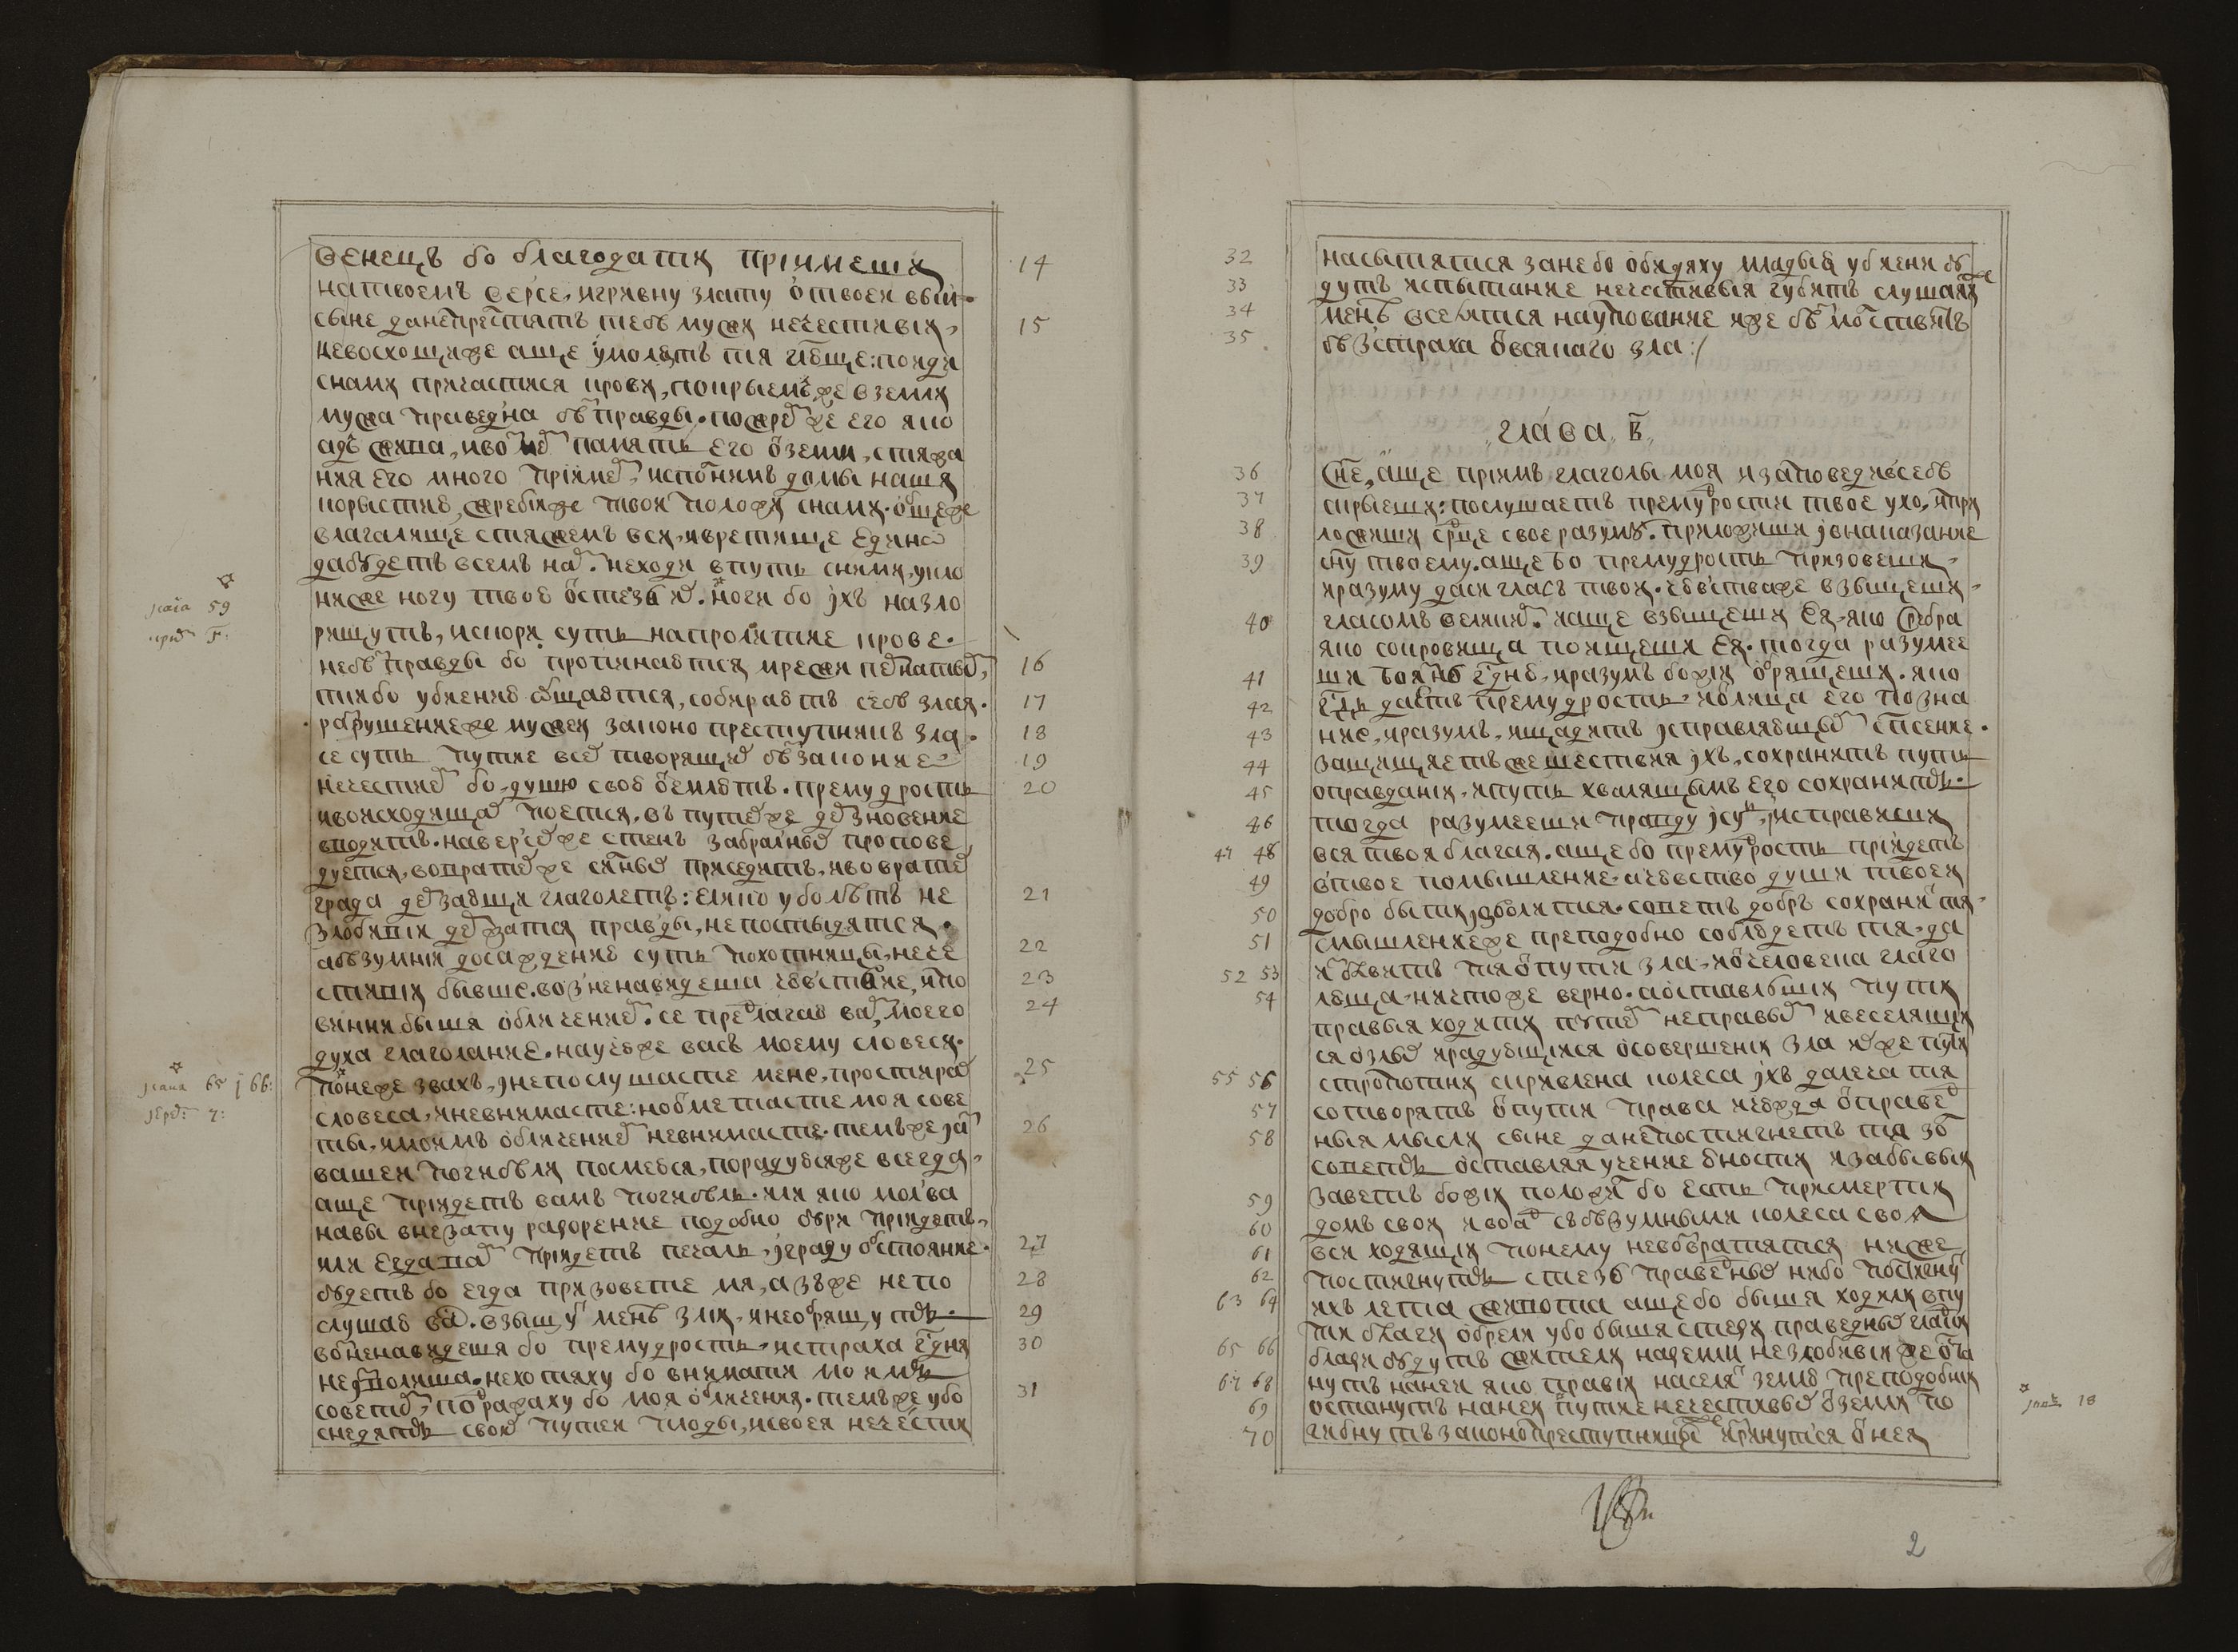 венецъ бо благодати приимеши
натвоемъ версе, игривну злату ѡтвоеи выи.
сыне данепрестятъ тебъ мужи нечестивіи,
невосхощиже аще умолятъ тя глюще: поиди
снами причастися крови, покрыемъже вземли
мужа праведна бъправды. пожремже его яко
адъ жива, ивоземъ память его ѿземли, стяжа
ния его много приимемъ, исполнимъ домы наша
корыстию, жребииже твои положи снами. общеже
влагалище стяжемъ вси, ивретище едино
дабудетъ всемъ намъ. неходи впуть сними, укло
ниже ногу твою ѿстезь ихъ. ноги бо ихъ назло
рищутъ, искори суть напролитие крове.
небъправды бо протинаются мрежи пернатымъ,
тиибо убиению общаются, собираютъ себъ злая.
разрушениеже мужей законопреступникъ зла.
се суть путие всехъ творящихъ бъзаконие
нечестиемъ бо, душю свою ѿемлютъ. премудрость
ивоисходищахъ поется, въ путехже дерзновение
водитъ. наверсехже стенъ забралныхъ пропове
дуется, вовратехже силныхъ приседитъ, ивовратехъ
града дерзающи глаголетъ: елико уболътъ не
злобивіи держатся правды, непостыдятся.
абъзумніи досаждению суть похотницы, нече
стивіи бывше. возненавидеша чювствие, ипо
винни быша обличениемъ. се предлагаю вамъ, моего
духа глаголание. научюже васъ моему словеси.
понеже звахъ, инепослушасте мене, простирахъ
словеса, иневнимасте: ноѿметасте моя сове
ты, имоимъ обличениемъ невнимасте. темъже иазъ
вашеи погибъли посмеюся, порадуюсяже всегда,
аще приидетъ вамъ погибъль. или яко молва
навы внезапу разорение подобно буря приидетъ,
или егдапа приидетъ печаль, играду обстояние.
будетъ бо егда призовете мя, азъже непо
слушаю васъ. взыщутъ менъ зли, инеобрящутъ.
возненавидеша бо премудрость, истраха гдня
неизволиша. нехотяху бо внимати моимъ
советомъ, поражаху бо моя обличения. темъже убо
снедятъ своихъ путеи плоды, исвоея нечестія
14
15
16
17
18
19
20
21
22
23
24
25
26
27
28
29
30
31
исаіа 59
исаиа 65 и 66:
насытятся занебо обидяху младыя убиени бу
дутъ испытание нечестивыя губитъ слушаяиже
менъ вселится науповании иже бъмолствитъ
бъзстраха ѿвсякаго зла:/
глава, в҃,
сн҃е, аще приимъ глаголы моя изаповеди ѿсебъ
скрыеши: послушаетъ премудрости твое ухо, ипри
ложиши срдце свое разуму. приложиши јвнаказание
сн҃у твоему. аще бо премудрость призовеши,
иразуму даси гласъ твои. чювстваже взыщеши,
гласомъ великимъ. иаще взыщеши ея, яко сребра
яко сокровища поищеши ея. тогда разумее
ши боязнь гдню, иразумъ божіи обрящеши. яко
гдь дастъ премудрость, иѿлица его позна
ние, иразумъ, ищадитъ исправляющымъ спсение.
защищаетъже шествия јхъ, сохранитъ пути
оправданія, ипуть хвалящымъ его сохранитъ.
тогда разумееши правду јсудъ, јисправиши
вся твоя благая. аще бо премудрость приидетъ
втвое помышление, ичювство души твоеи
добро быти изволится. советъ добръ сохранитъ тя,
смышлениеже преподобно соблюдетъ тя, да
избавитъ тя ѿпути зла, иѿчеловека глаго
люща, ничтоже верно. аѿставльшия пути
правыя ходити путемъ неправымъ ивеселящи
ся озлыхъ ирадующіяся осовершеніи зла ихже пути
стропотни искривлена колеса јхъ далеча тя
сотворятъ ѿпути права ичюжда ѿправед
ныя мысли сыне данепостигнетъ тя золъ
советъ оставляя учение юности изабывыи
заветъ божіи положи бо есть присмерти
домъ свои и во адъ събъзумными колеса своя
вси ходящіи понему невозвратятся ниже
постигнутъ стезь праведныхъ нибо постигнутъ
ихъ лета живота аще бо быша ходили впу
ти благи обрели убо быша стезя праведныхъ гладки
блази будутъ жители наземли незлобивіи же оста
нутъ наней яко правіи населятъ землю преподобніи
останутъ наней путие нечестивыхъ ѿземли по
гибнутъ законопреступницы изринутся ѿ нея
32
33
34
35
36
37
38
39
40
41
42
43
44
45
46
47 48
49
50
51
52 53
54
55 56
57
58
59
60
61
62
63 64
65 66
67 68
69
70
18
2